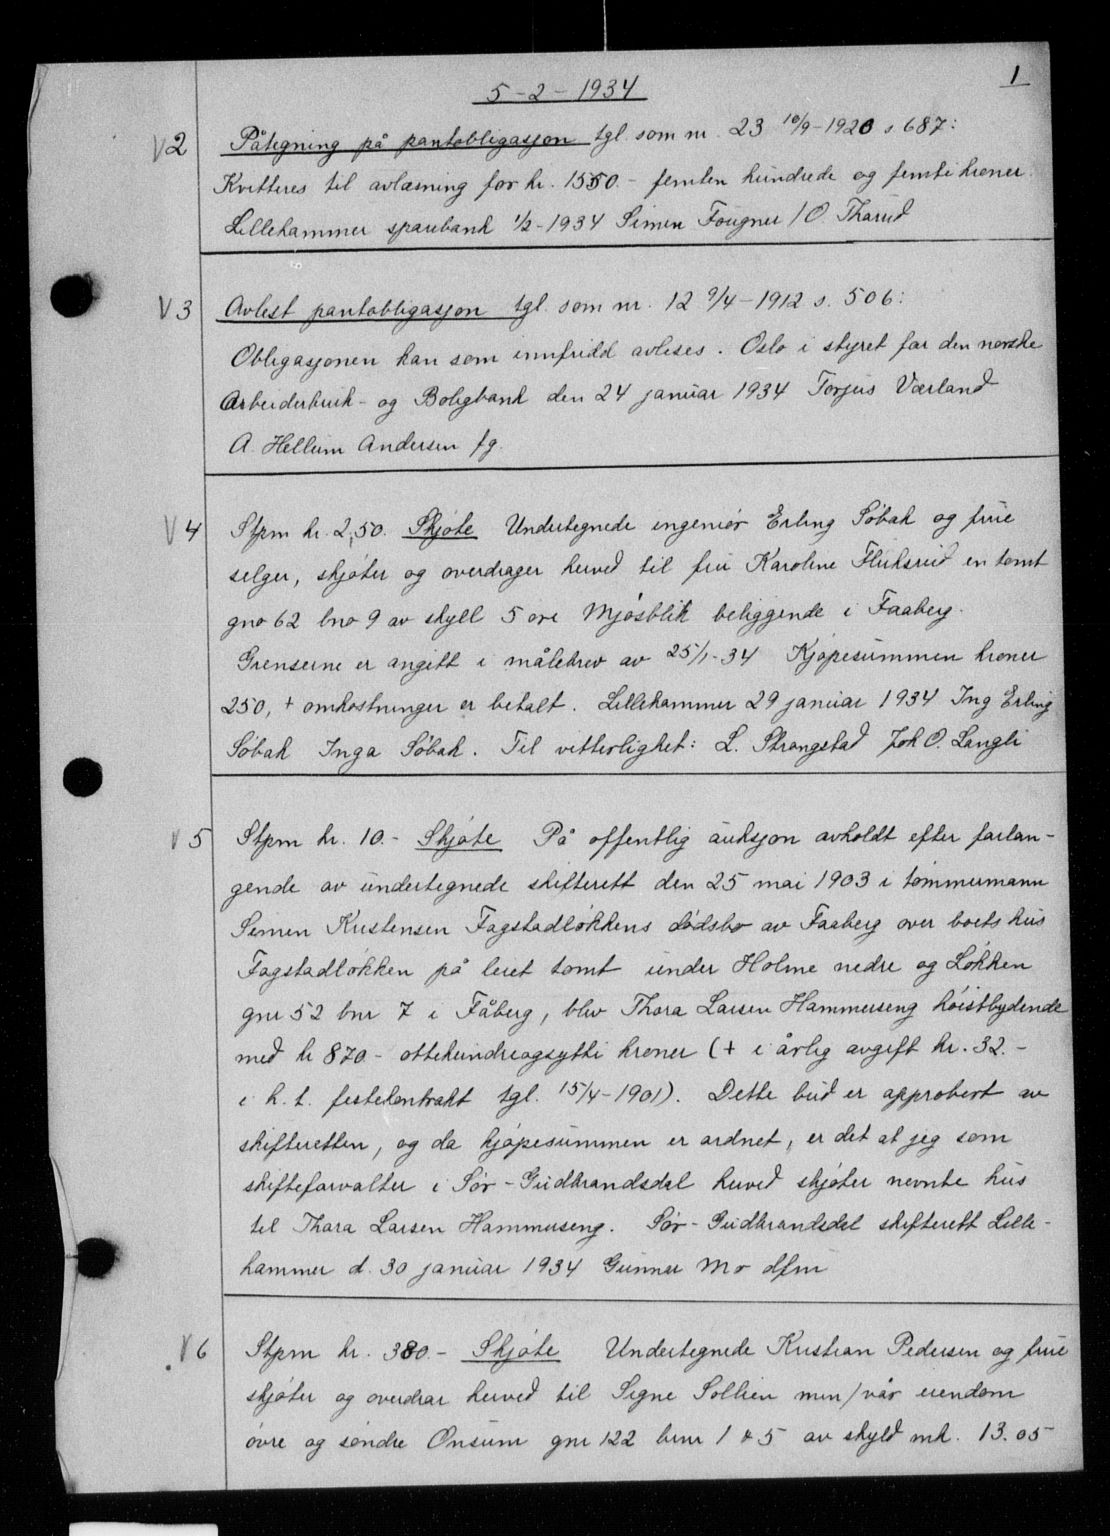 1
5-2-1934
V2 Påtegning på pantobligasjon tgl. som nr. 23 10/9-1920 s. 687:
Kvitteres til avlæsning for kr. 1550.- femten hundrede og femti kroner.
Lillehammer sparebank 1/2-1934 Simen Fougner / O. Tharud
V3 Avlest pantobligasjon tgl. som nr. 12 9/4-1912 s. 506:
Obligasjonen kan som innfridd avleses. Oslo i styret for den norske
Arbeiderbruk- og Boligbank den 24 januar 1934 Torjus Værland
A. Hellum Andersen fg.
V4 Stpm kr. 2,50. Skjøte Undertegnede ingeniør Erling Søbak og frue
selger, skjøter og overdrager herved til fru Karoline Fluksrud en tomt
gno 62 bno 9 av skyll 5 øre Mjøsblik beliggende i Faaberg.
Grenserne er angitt i målebrev av 25/1-34 Kjøpesummen kroner
250, + omkostninger er betalt. Lillehammer 29 januar 1934 Ing Erling
Søbak Inga Søbak. Til vitterlighet: L. Strangstad Joh O. Langli
V5 Stpm kr. 10.- Skjøte På offentlig auksjon avholdt efter forlan-
gende av undertegnede skifterett den 25 mai 1903 i tømmermann
Simen Kristensen Fagstadløkkens dødsbo av Faaberg over boets hus
Fagstadløkken på leiet tomt under Holme nedre og Løkken
gnr 52 bnr 7 i Fåberg, blev Thora Larsen Hammerseng høistbydende
med kr 870- ottehundreogsytti kroner (+ i årlig avgift kr. 32.-
i h. t. festekontrakt tgl. 15/4-1901). Dette bud er approbert av
skifteretten, og da kjøpesummen er ordnet, er det at jeg som
skifteforvalter i Sør-Gudbrandsdal herved skjøter nevnte hus
til Thora Larsen Hammerseng. Sør-Gudbrandsdal skifterett Lille-
hammer d. 30 januar 1934 Gunnar Mo dfm
V6 Stpm kr. 380.- Skjøte Undertegnede Kristian Pedersen og frue
skjøter og overdrar herved til Signe Sollien min/vår eiendom
øvre og søndre Onsum gnr 122 bnr 1 & 5 av skyld mk. 13.05